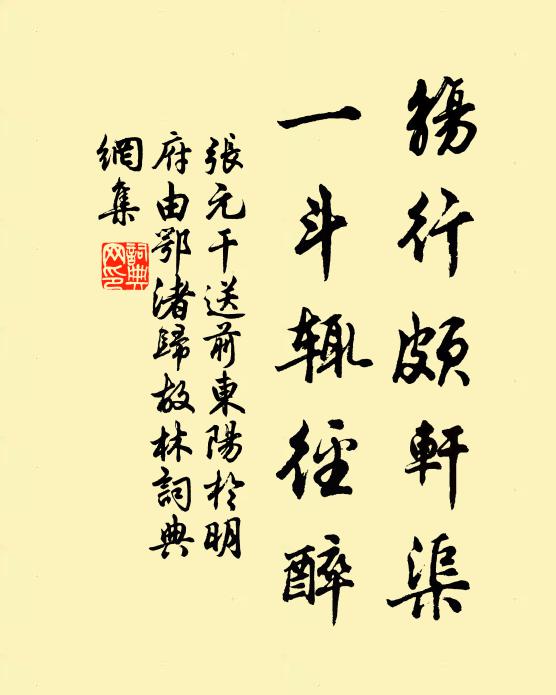 觴行頗軒渠
一斗辄徑醉
張元干送前東陽於明
府由鄂渚歸故林詞典
網集
詞典
网印